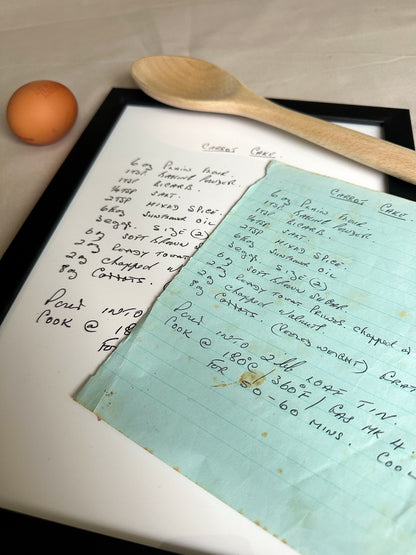 CARROT CAKE.
6 oz PLAIN FLOUR.
1 TSP BAKING POWDER.
1 TSP BICARB.
½ TSP SALT.
2 TSP MIXED SPICE.
6 flog SUNFLOWER OIL
3 eggs. SIZE (2)
6 oz SOFT BROWN
2 oz READY TO EAT
2 oz chopped
8 oz CARROTS.
POUR INTO
COOK @ 18
FOR
CARROT CAKE
6 oz PLAIN FLOUR.
1 TSP BAKING POWDER.
1 TSP BICARB.
½ TSP SALT.
2 TSP MIXED SPICE.
SUNFLOWER OIL
3 eggs. SIZE (2)
6 oz SOFT BROWN SUGAR.
2 oz READY TO EAT PRUNES, chopped
2 oz chopped WALNUTS
8 oz CARROTS. (PEELED WEIGHT) GRAT
POUR INTO 2 lb LOAF TIN.
COOK @ 180°C / 360°F / GAS MK 4.
FOR 50-60 MINS. COOL